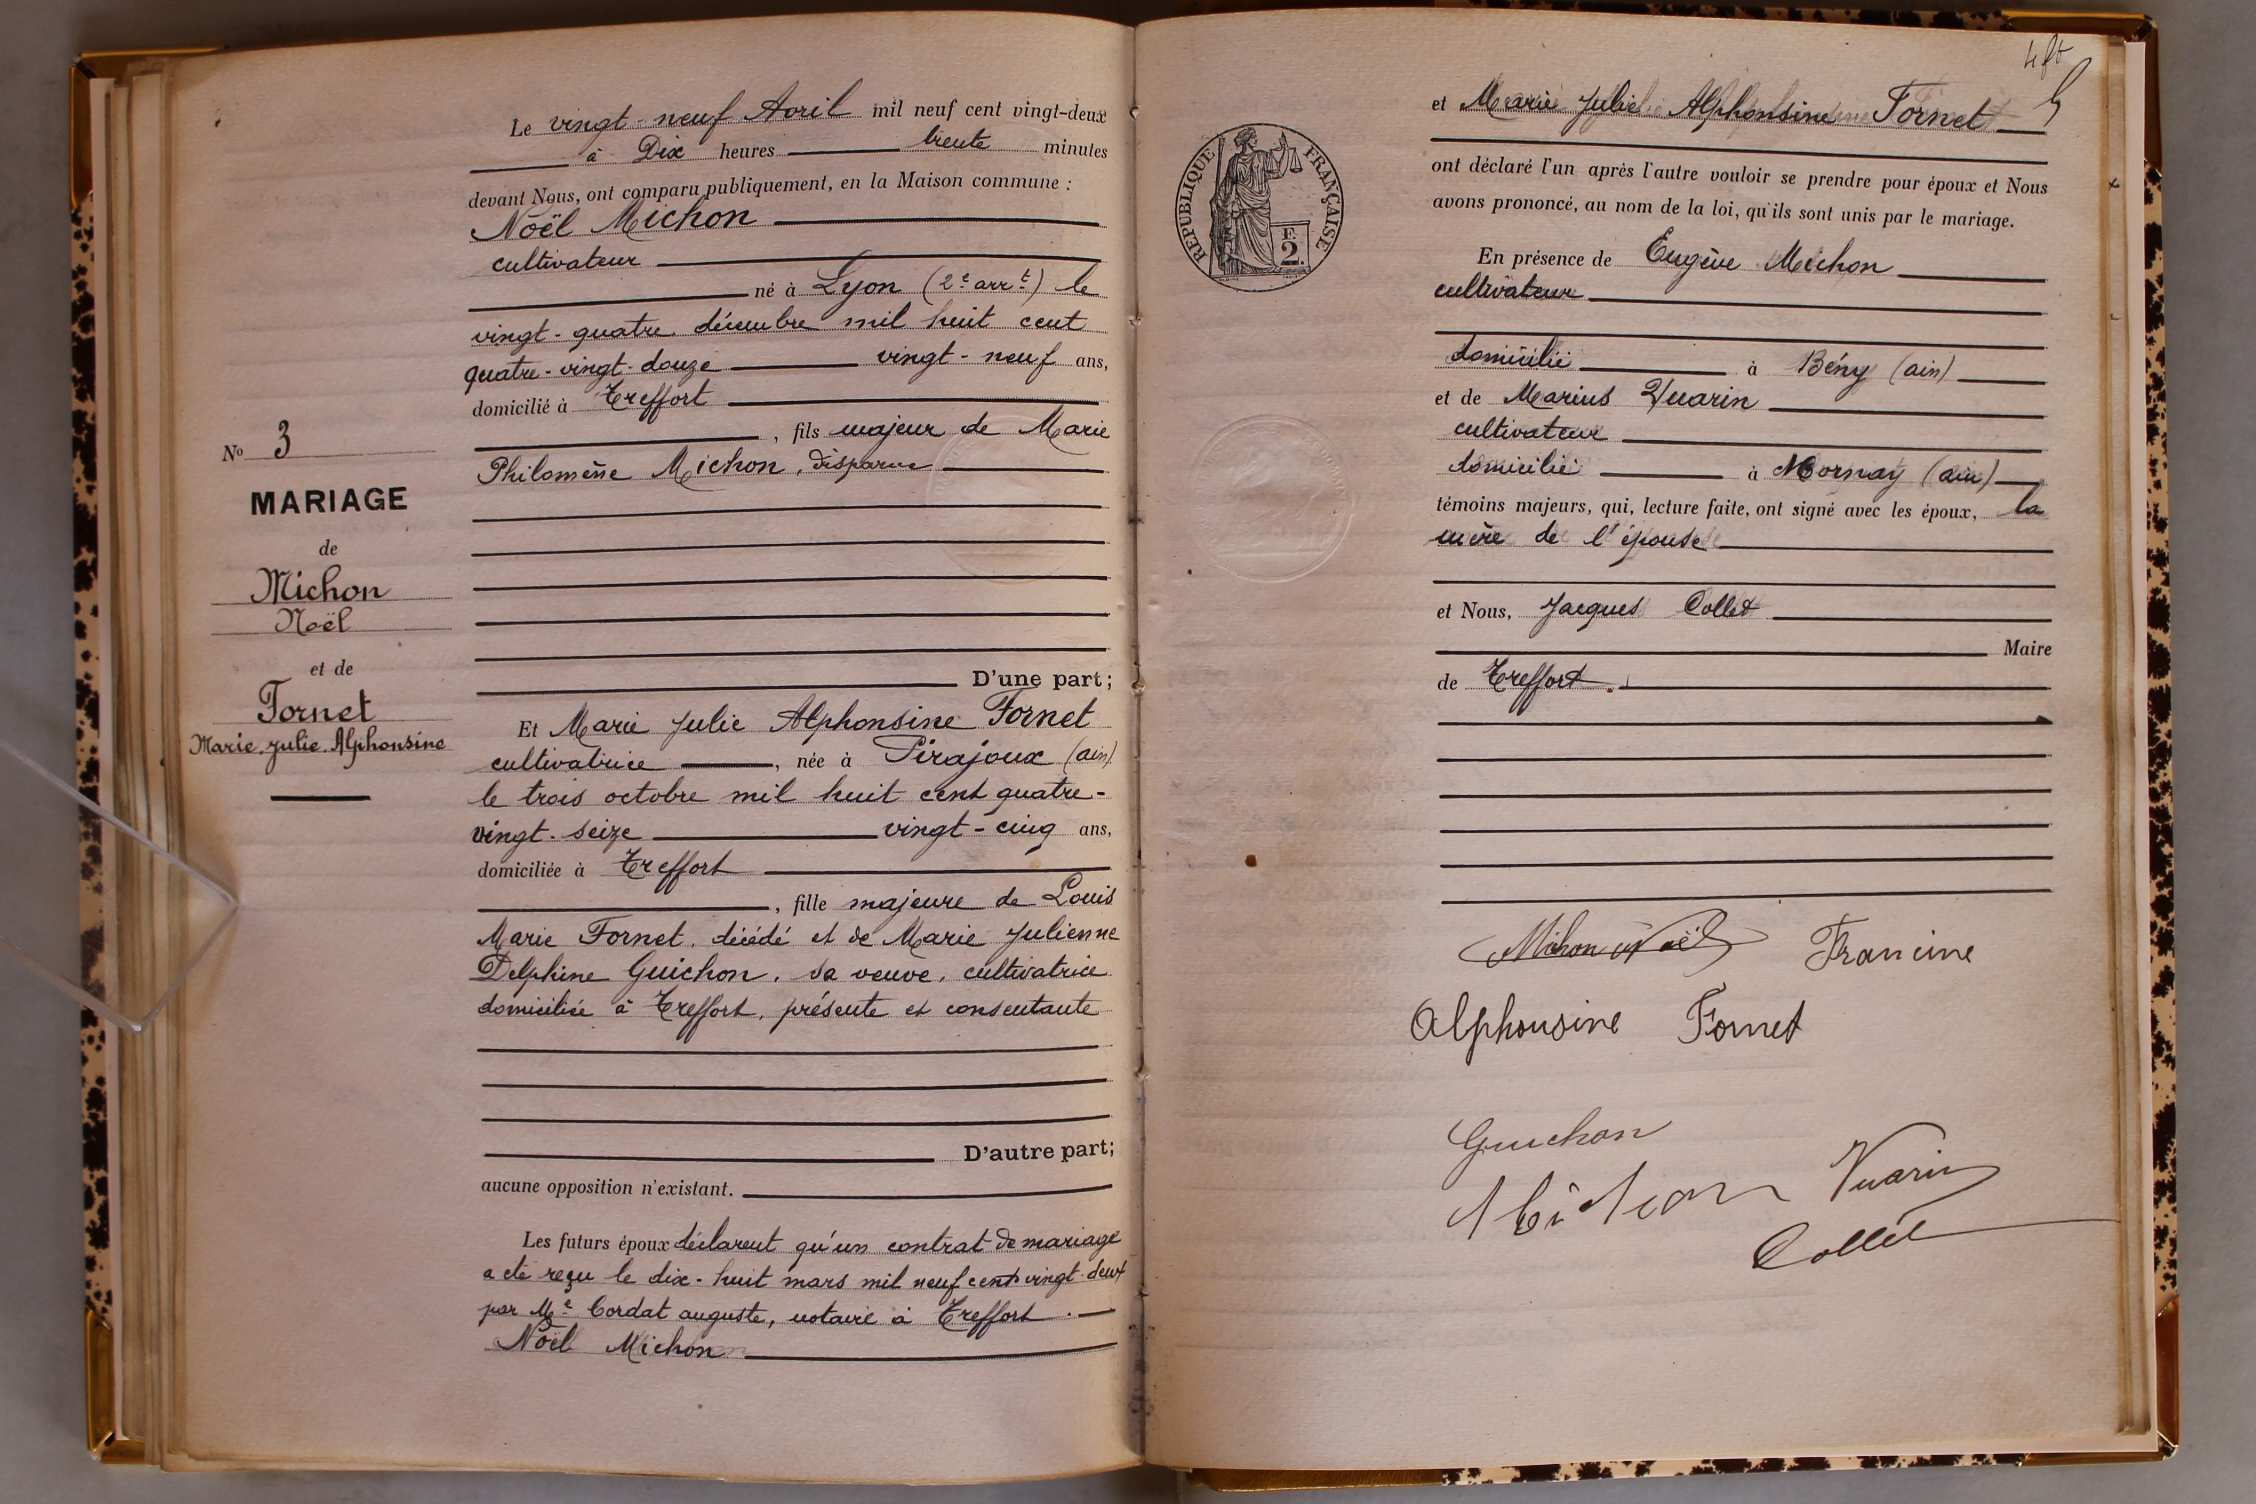 N° 3
MARIAGE
de
Michon
Noël
et de
Fornet
Marie Julie Alphonsine
Le vingt-neuf Avril mil neuf cent vingt-deux
à Dix heures trente minutes
devant Nous, ont comparu publiquement, en la Maison commune :
Noël Michon
cultivateur
né à Lyon (2e arrt) le
vingt-quatre décembre mil huit cent
quatre-vingt-douze vingt-neuf ans,
domicilié à Treffort
, fils majeur de Marie
Philomène Michon, disparue
D'une part;
Et Marie Julie Alphonsine Fornet
cultivatrice, née à Pirajoux (ain)
le trois octobre mil huit cent quatre-
vingt-seize vingt-cinq ans,
domiciliée à Treffort
, fille majeure de Louis
Marie Fornet, décédé et de Marie Julienne
Delphine Guichon, sa veuve, cultivatrice
domiciliée à Treffort, présente et consentante
D'autre part;
aucune opposition n'existant.
Les futurs époux déclarent qu'un contrat de mariage
a été reçu le dix-huit mars mil neuf cent vingt-deux
par Me Cordat auguste, notaire à Treffort.
Noël Michon
et Marie Julie Alphonsine Fornet
RÉPUBLIQUE FRANÇAISE
F.
2.
ont déclaré l'un après l'autre vouloir se prendre pour époux et Nous
avons prononcé, au nom de la loi, qu'ils sont unis par le mariage.
En présence de Eugène Michon
cultivateur
domicilié à Bény (ain)
et de Marius Vuarin
cultivateur
domicilié à Mornay (ain)
témoins majeurs, qui, lecture faite, ont signé avec les époux, la
mère de l'épouse
et Nous, Jacques Collet
Maire
de Treffort.
Michon Noël Francine
Alphonsine Fornet
Guichon
Michon Vuarin
Collet